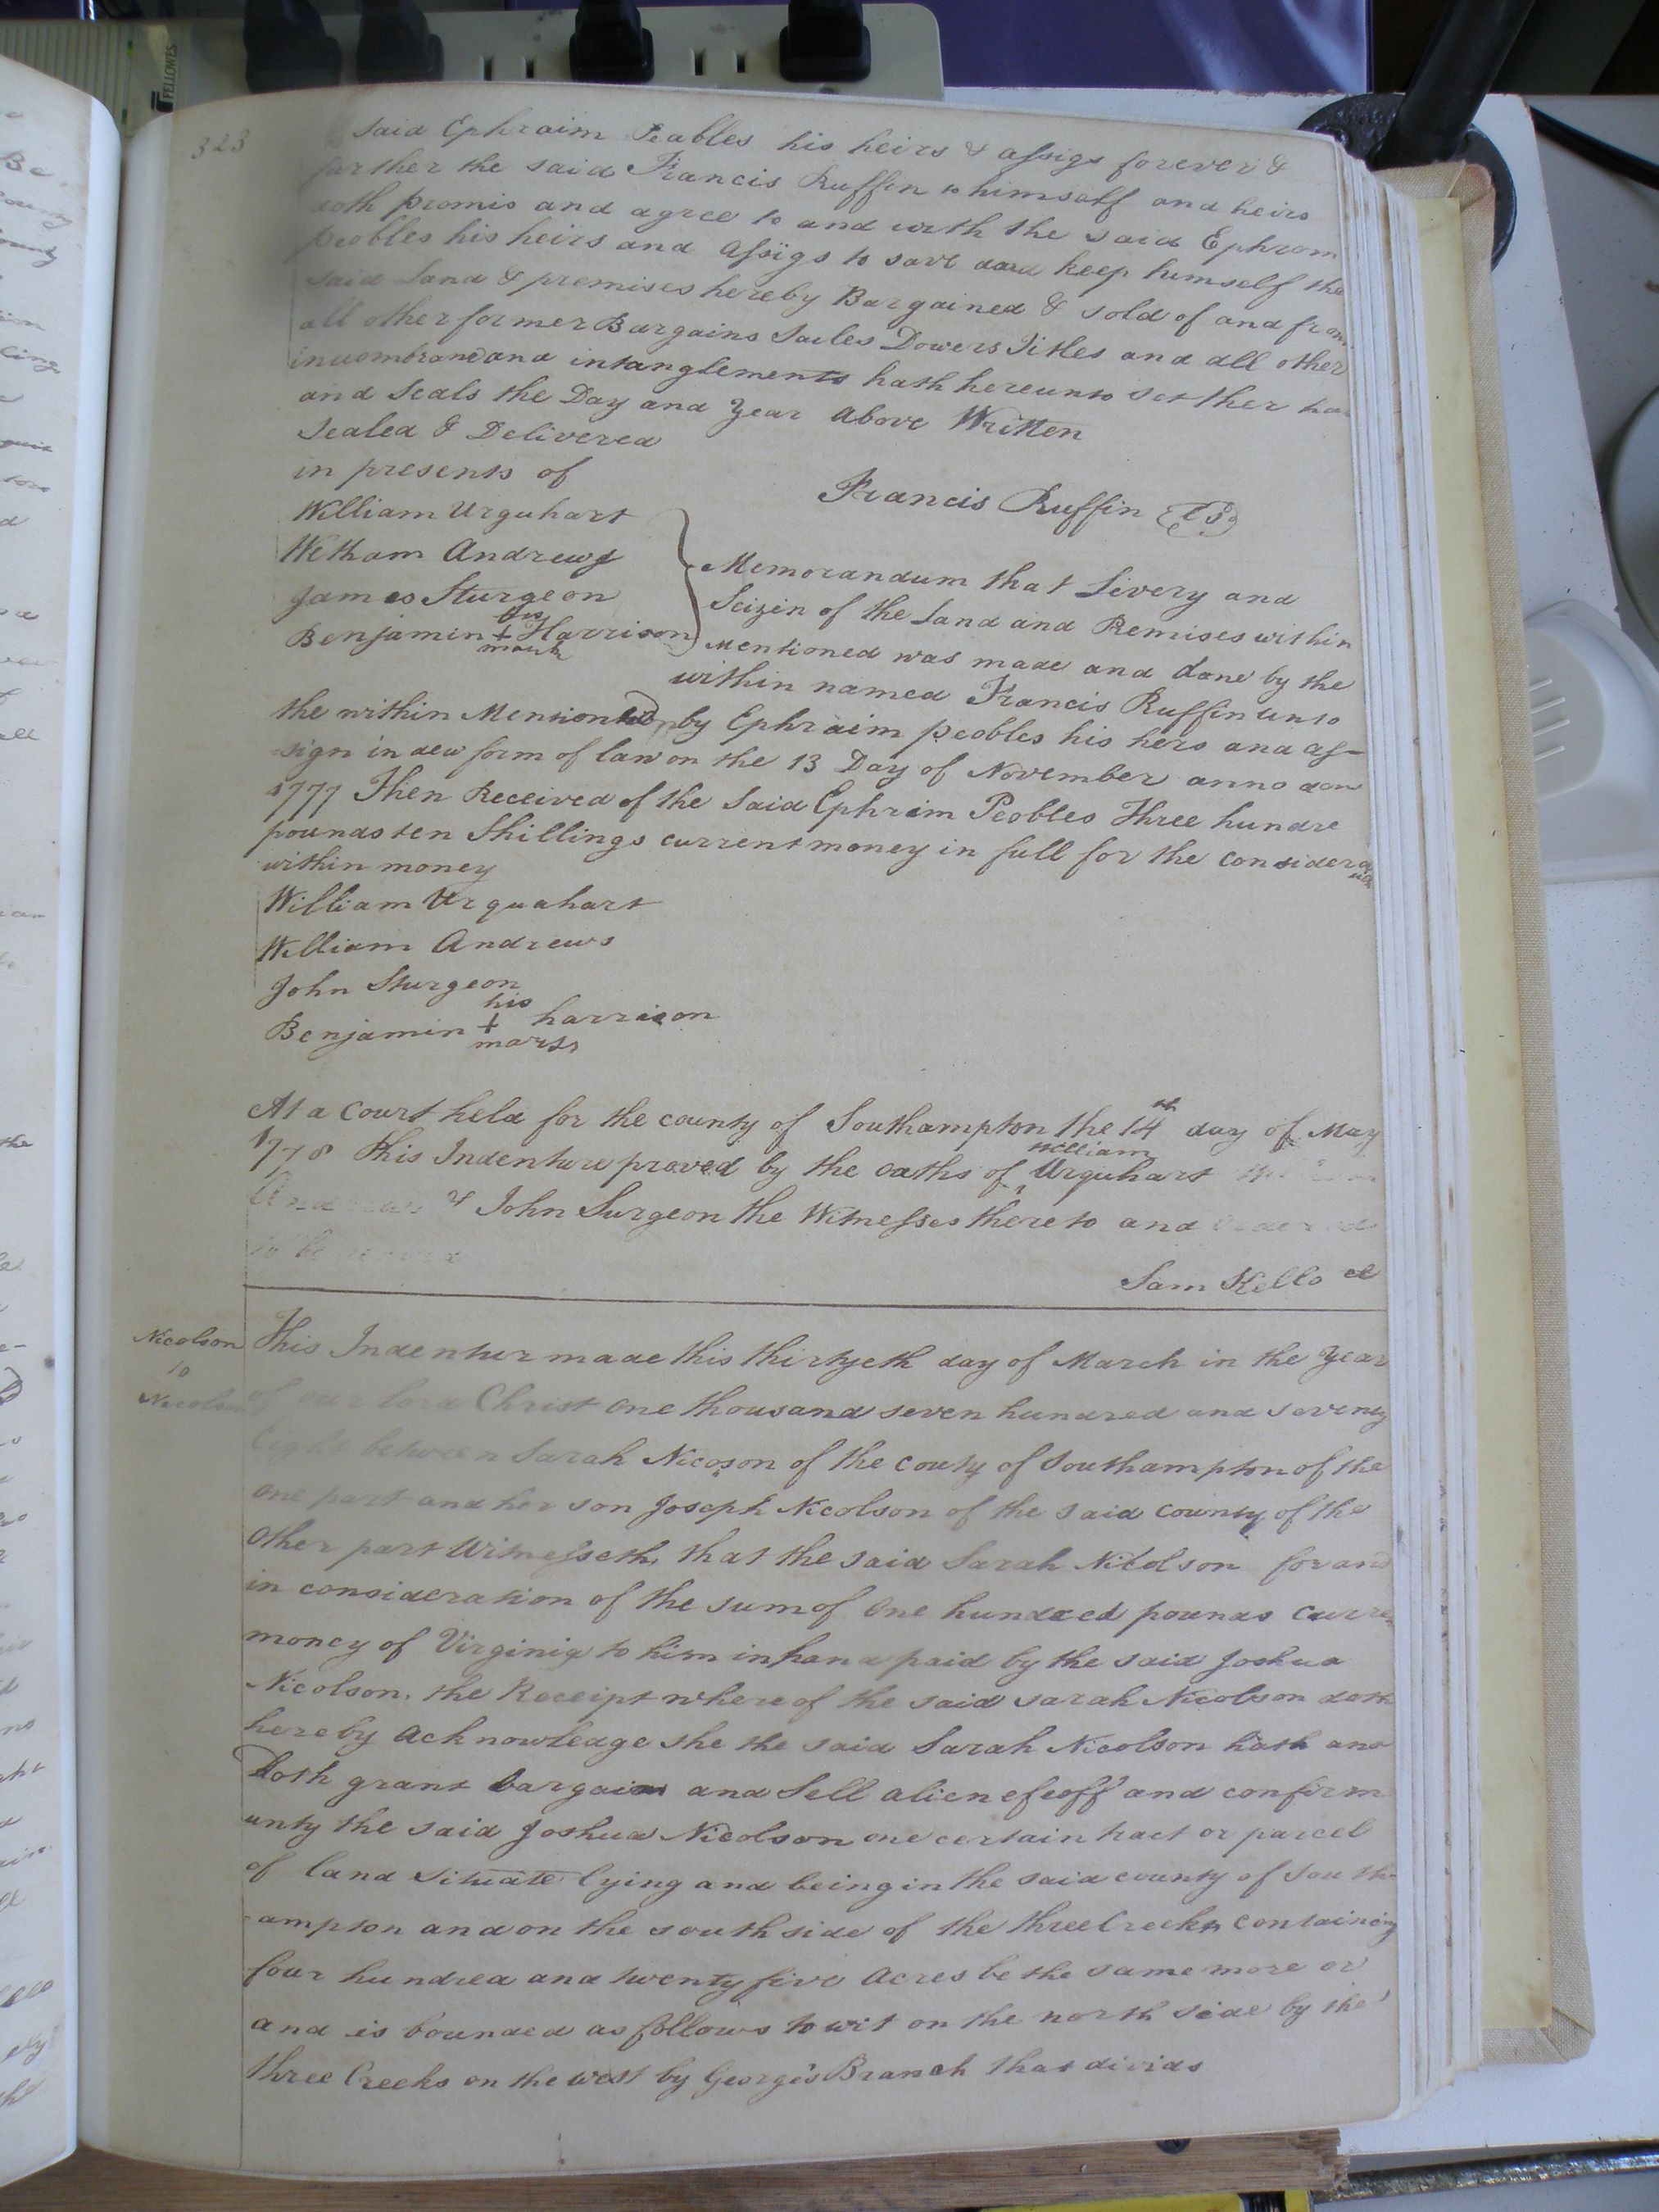 FELLOWES
323
said Ephraim Peables his heirs & assigs forever &
further the said Francis Ruffin to himself and heirs
doth promis and agree to and with the said Ephrom
peobles his heirs and Assigs to save and keep himself the
said Land & premises hereby Bargained & sold of and from
all other former Bargains Sailes Dowers Titles and all other
incombranc and intanglements hath hereunto set ther
and Seals the Day and Year Above Written
Sealed & Delivered
in presents of
Francis Ruffin LS
William Urquhart
Witham Andrews
James Sturgeon
his
Benjamin + Harrison
mark
Memorandum that Livery and
Seizin of the Land and Remises within
Mentioned was made and done by the
within named Francis Ruffin unto
the within Mentioned by Ephraim peobles his hers and as=
=sign in dew form of law on the 13 Day of November anno dom
1777 Then Received of the Said Ephrim Peobles Three hundre
pounds ten Shillings current money in full for the consideration
within money
William Urquahart
William Andrews
John Sturgeon
his
Benjamin + harrison
mark
At a Court held for the county of Southampton the 14th day of May
1778 This Indenture proved by the oaths of William Urquhart
Andrews & John Surgeon the Witnesses thereto and ordered
to be record
Sam Kello cl
Nicolson
to
Nicolson
This Indentur made this thirtyeth day of March in the Year
of our lord Christ one thousand seven hundred and seventy
Eight between Sarah Nicoson of the couty of Southampton of the
one part and her son Joseph Nicolson of the said county of the
other part Witnesseth, that the said Sarah Nicolson for and
in consideration of the sum of one hundred pounds curre
money of Virginia to him in hand paid by the said Joshua
Nicolson, the Receipt where of the said sarah Nicolson doth
hereby acknowledge she the said Sarah Nicolson hath and
Doth grant bargain and Sell alien efeoff and confirm
unty the said Joshua Nicolson one certain tract or parcel
of land situate lying and being in the said county of South=
=ampton and on the south side of the three Creeks containing
four hundred and twenty five Acres be the same more or
and is bounded as follows to wit on the north side by the
three Creeks on the west by George's Branch that divids